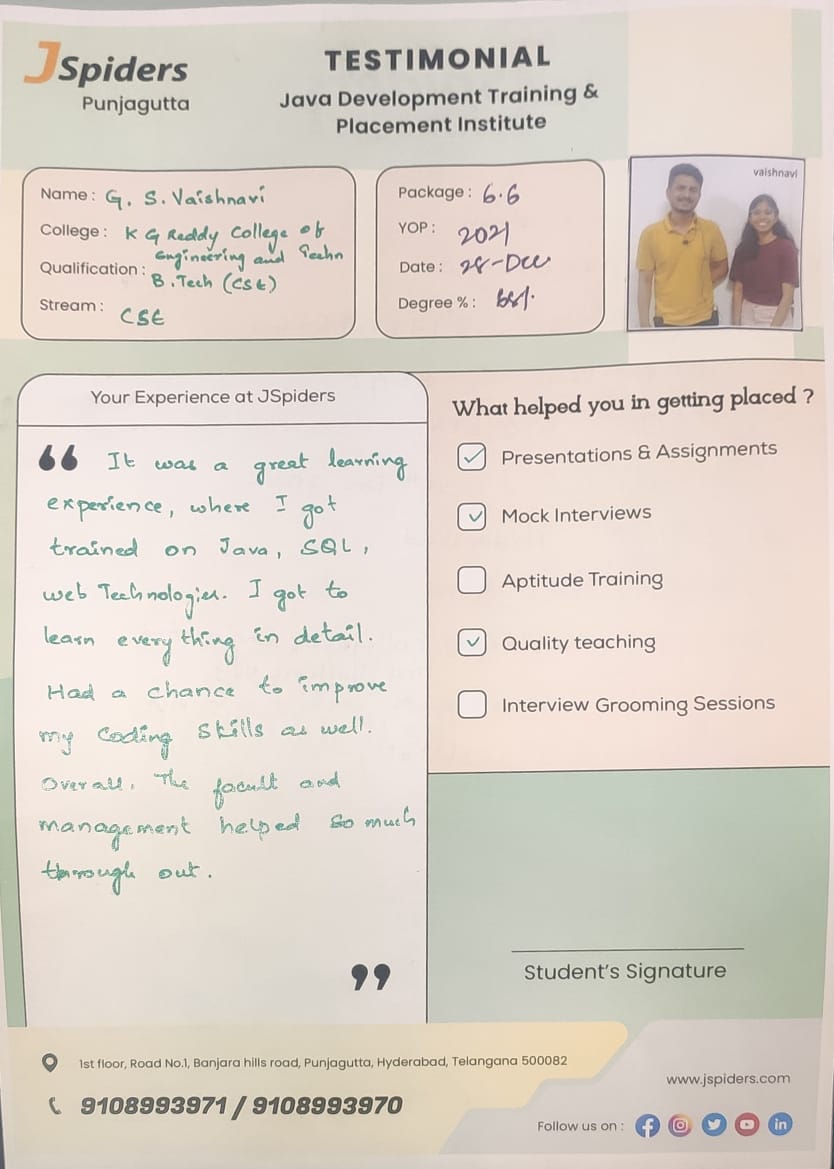 JSpiders
Punjagutta
TESTIMONIAL
Java Development Training &
Placement Institute
Name : G. S. Vaishnavi
College : K G Reddy College of
Engineering and Techn
Qualification : B.Tech (CSE)
Stream : CSE
Package : 6.6
YOP : 2021
Date : 28-Dec
Degree % :
vaishnavi
Your Experience at JSpiders
“ It was a great learning
experience, where I got
trained on Java, SQL,
web Technologies. I got to
learn every thing in detail.
Had a chance to improve
my coding skills as well.
Overall, The facult and
management helped so much
through out.
”
What helped you in getting placed ?
Presentations & Assignments
Mock Interviews
Aptitude Training
Quality teaching
Interview Grooming Sessions
Student's Signature
1st floor, Road No.1, Banjara hills road, Punjagutta, Hyderabad, Telangana 500082
9108993971 / 9108993970
www.jspiders.com
Follow us on :